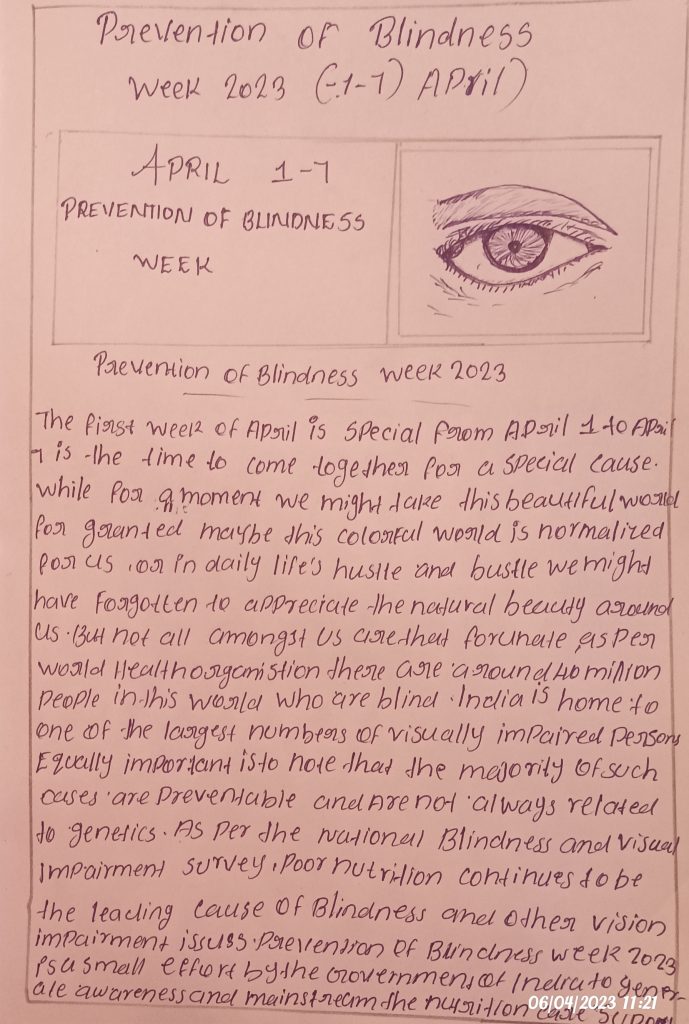 Prevention of Blindness
Week 2023 (-1-7) April)
APRIL 1-7
PREVENTION OF BLINDNESS
WEEK
Prevention of Blindness week 2023
The first week of April is special from April 1 to April
7 is the time to come together for a special cause.
while for a moment we might take this beautiful world
for granted maybe this colorful world is normalized
for us, or in daily life's hustle and bustle we might
have forgotten to appreciate the natural beauty around
us. But not all amongst us are that forunate, as per
world Health organistion there are around 40 million
people in this world who are blind. India is home to
one of the largest numbers of visually impaired persons
Equally important is to note that the majority of such
cases are preventable and are not always related
to genetics. As per the National Blindness and visual
impairment survey, poor nutrition continues to be
the leading cause of Blindness and other vision
impairment issuss. Prevention of Blindness week 2023
is a small effort by the Government of India to gener-
ate awareness and mainstream the nutrition care
06/04/2023 11:21